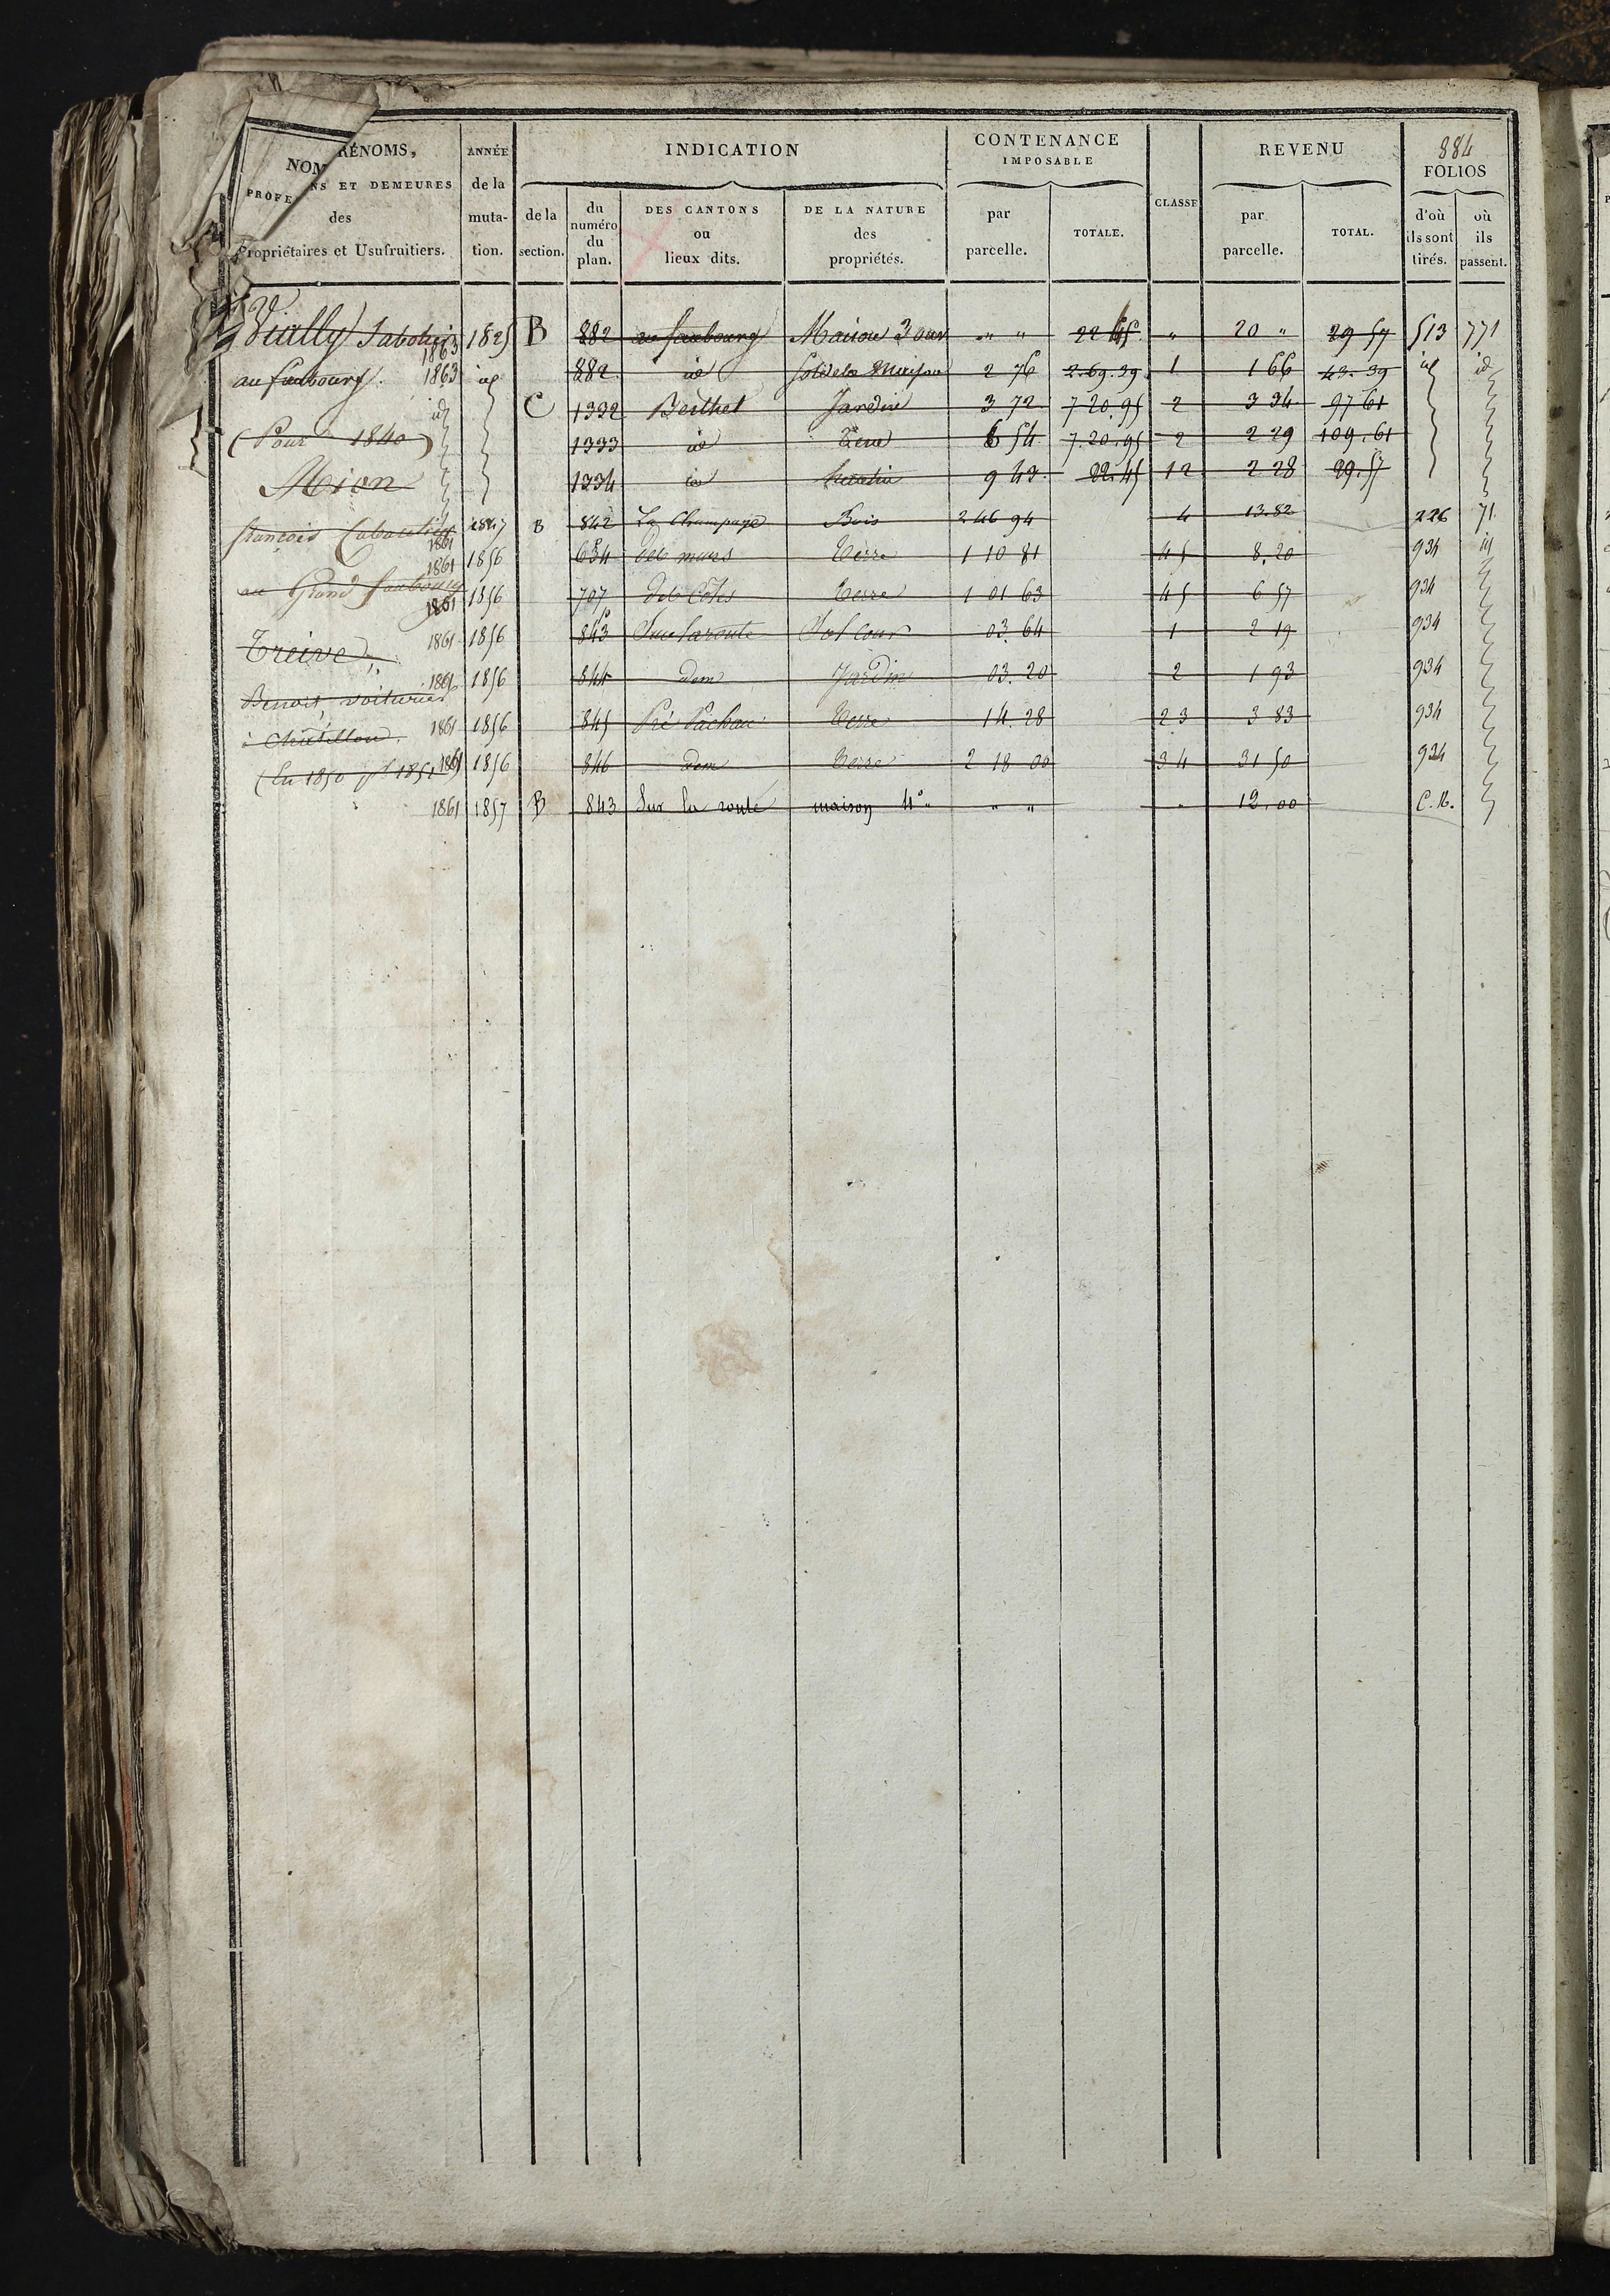 884
NOM RÉNOMS,
PROFE NS ET DEMEURES
des
Propriétaires et Usufruitiers.
ANNÉE
de la
muta-
tion.
INDICATION
de la
section.
du
numéro
du
plan.
DES CANTONS
ou
lieux dits.
DE LA NATURE
des
propriétés.
CONTENANCE
IMPOSABLE
par
parcelle.
TOTALE.
CLASSE
REVENU
par
parcelle.
TOTAL.
FOLIOS
d'où
ils sont
tirés.
où
ils
passent.
Sabotier 1863 1825 B 882 au faubourg Maison 3 ouv " " 22 45 " 20 " 29 57 513 771
au faubourg. 1863 id 882 id Sol de la Maison 2 76 2.69.39 1 1 66 43.39 id id
id C 1332 Berthet Jardin 3 72 7 20.95 2 3 34 97 61
(Pour 1840) 1333 id Terre 6 54 7.20.95 2 2 29 109.61
Mion 1334 id 9 43 22.45 12 2 28 29.57
françois Cabaretier 1861 1847 B 842 La Champagne Bois 2 46 94 4 13.82 226 71
1861 1856 634 des murs Terre 1 10 81 45 8.20 934 id
au Grand faubourg 1861 1856 707 des Côtes Terre 1 01 63 45 6 57 934
Treive, 1861 1856 843 Sur la route Sol cour 03.64 1 2 19 934
Benoit, voiturier 1861 1856 844 dem Jardin 03.20 2 1 93 934
à Chatillon. 1861 1856 845 Pré Terre 14.28 23 3 83 934
(En 1850 pr 1851 1861 1856 846 dem Terre 2 18 00 34 31 50 934
1861 1857 B 843 Sur la route maison 4° " " " 12.00 C.B.